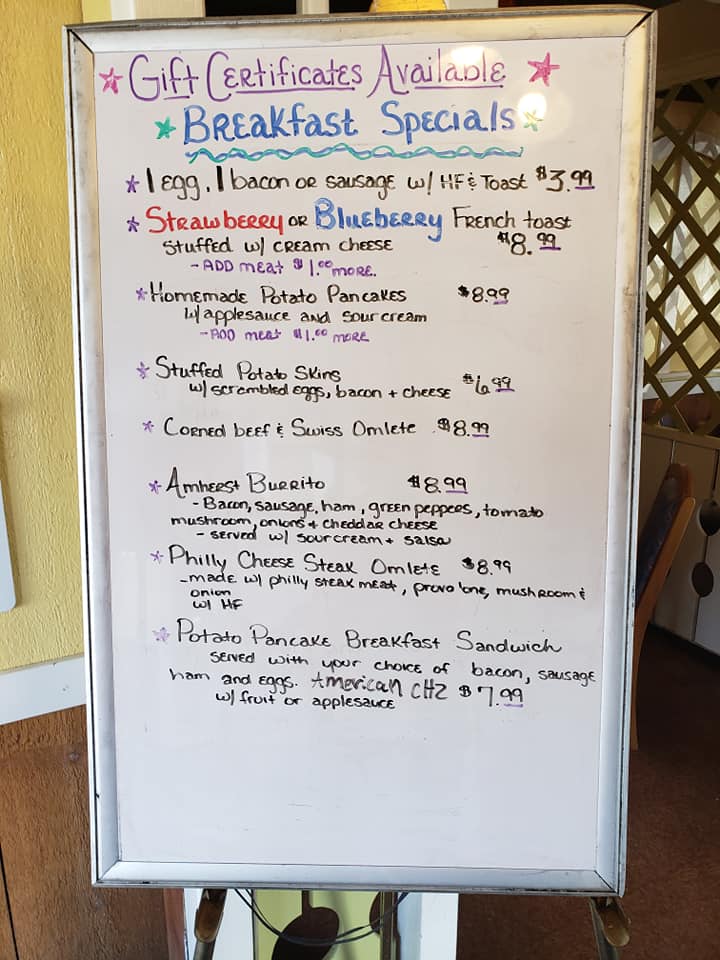 Gift Certificates Available
Breakfast Specials
1 egg, 1 bacon or sausage w/ HF & Toast $3.99
Strawberry or Blueberry French toast
stuffed w/ cream cheese $8.99
- ADD meat $1.00 more.
Homemade Potato Pancakes $8.99
w/ applesauce and sour cream
- ADD meat $1.00 more
Stuffed Potato Skins
w/ scrambled eggs, bacon + cheese $6.99
Corned beef & Swiss Omlete $8.99
Amherst Burrito $8.99
- Bacon, sausage, ham, green peppers, tomato
mushroom, onions + cheddar cheese
- served w/ sour cream + salsa
Philly Cheese Steak Omlete $8.99
- made w/ philly steak meat, provo'one, mushroom &
onion
w/ HF
Potato Pancake Breakfast Sandwich
served with your choice of bacon, sausage
ham and eggs. American CHZ $7.99
w/ fruit or applesauce